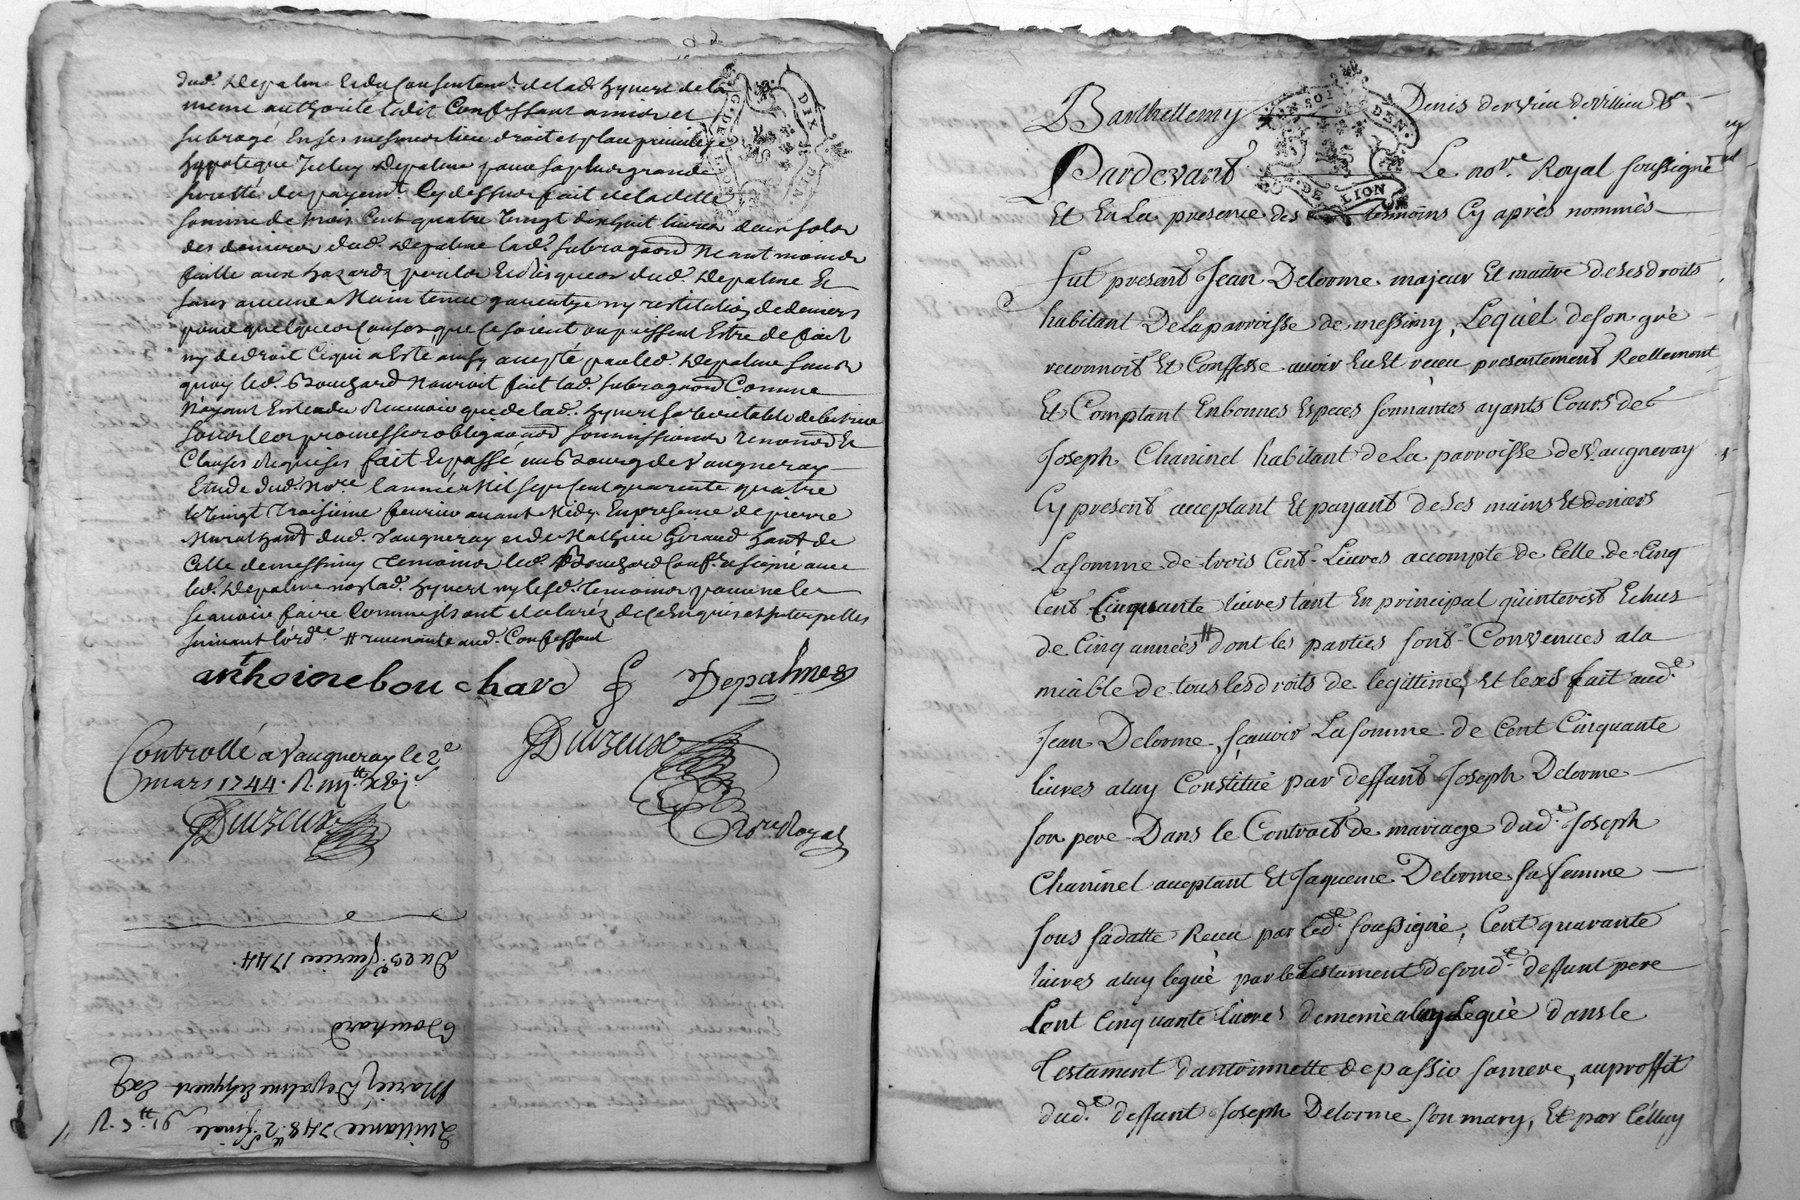 dud. Depalme et du consentemt. de lad. hyvert de la
meme authorité ledit Confessant a mis et
subrogé en ses mesmes lieu droit et place privilege
hypoteque Iceluy Depalme pour sa plus grande
sureté du payemt. Cy dessus fait de ladette
somme de trois Cent quatre vingt dixhuit livres deux solds
des deniers dud. Depalme lad. subrogaon Neantmoins
faitte aux hazards perils et Risques dud. Depalme Et
sans aucune Maintenue garentye ny restitution de deniers
pour quelques Causes que ce soient ou puissent Estre de fait
ny de droit Ce qui a Esté ainsy accepté par led. Depalme sans
quoy led. Bouchard N'auroit fait lad. subrogaon Comme
N'ayant Entendu que de lad. hyvert sa veritable debitrice
sous les promesses obligaons soumissions renonaons Et
Clauses Requises fait Et passé au Bourg de Vaugneray
Etude dud. Nore. l'année Mil sept Cent quarente quatre
le vingt troisieme fevrier avant Midy En presence de pierre
hant. dud. Vaugneray et de Mathieu Giraud hant. de
Celle de messimy temoins led. Bouchard Conf. a signé avec
led. Depalme non lad. hyvert ny lesd. temoins pour ne le
scavoir faire Comme ils ont declarés de ce Enquis et Interpellés
suivant l'ordce # audt. Confessant
anthoine bouchard Depalmes
Duizeux
Nore Royal
Controllé a Vaugneray le 2e
mars 1744. R.
Duizeux
Du 23e. fevrier 1744.
Bouchard
Mariez Depalme Et hyvert
Quittance 748 # 2 s finale
Barthellemy Denis de rvieu de villieu &a.
DIX DEN.
G. DE LION
Pardevant Le nore. Royal soussigné
Et En La presence des temoins Cy après nommés
fut present Jean Delorme majeur Et maitre de ses droits
habitant De la parroisse de messimy, Lequel de son gré
reconnoit Et Conffesse avoir Eu Et receu presentement Reellement
Et Comptant En bonnes Especes sonnantes ayants Cours de
Joseph Chaninel habitant de La parroisse de Vaugneray
Cy present acceptant Et payant de ses mains Et deniers
La somme de trois Cent Livres accompte de Celle de Cinq
Cent Cinquante livres tant En principal qu'interest Echus
de Cinq années # dont les parties sont Convenues a la
miable de tous les droits de legittime, Et lexs fait aude.
Jean Delorme, sçavoir La somme de Cent Cinquante
livres a luy Constitué par deffunt Joseph Delorme
son pere Dans le Contract de mariage dude. Joseph
Chaninel acceptant Et Jaqueme Delorme sa femme
sous sa datte Receu par Lede. soussigné, Cent quarante
livres a luy legué par le testament de sond.e deffunt pere
Cent Cinquante livres de meme a luy Legué dans le
Testament d'antoinnette de passio sa mere, au proffit
dud.e deffunt Joseph Delorme son mary, Et par Celluy